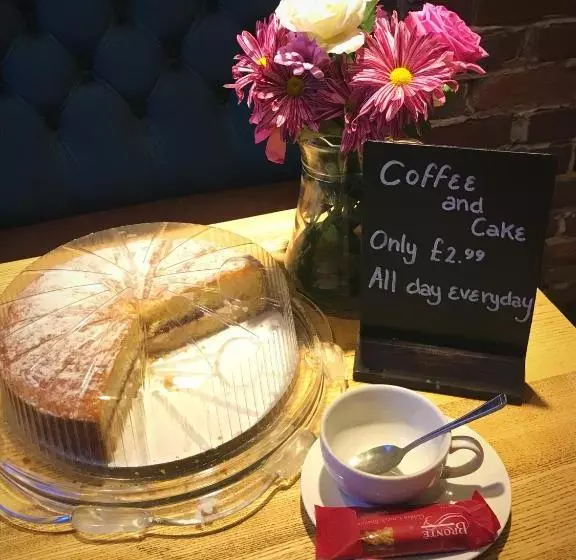 Coffee
and
Cake
Only £2.99
All day everyday
BRONTE